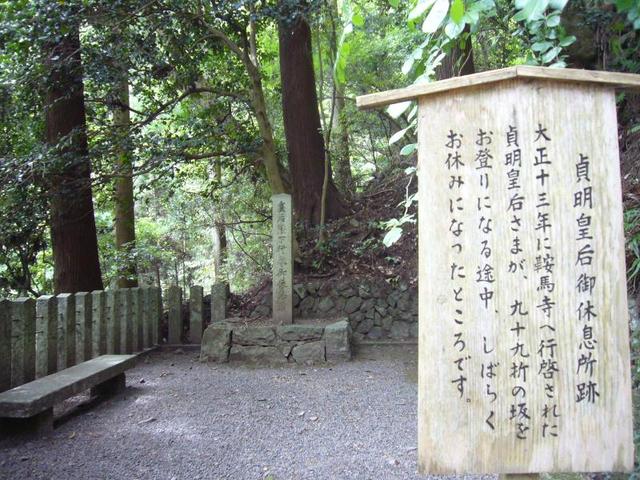 貞明皇后御休息所跡
大正十三年に鞍馬寺へ行啓された
貞明皇后さまが、九十九折の坂を
お登りになる途中、しばらく
お休みになったところです。
皇后陛下御休息所